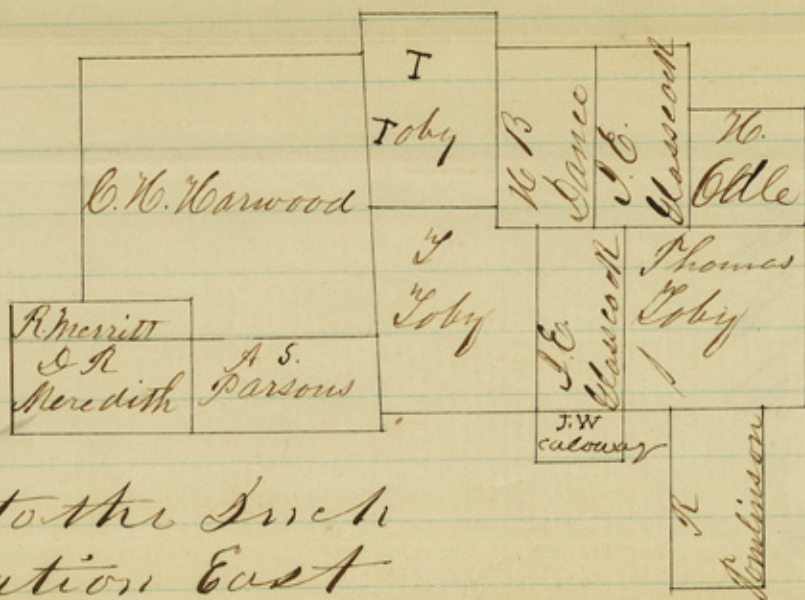 T
Toby
C. H. Harwood
H B
Dance
J. E.
Glasscock
H.
Odle
T
Toby
J. E.
Glasscock
Thomas
Toby
R. Merritt
D R
Meredith
A S.
Parsons
J. W
Caloway
R
Tomlinson
to the Inch
ation East